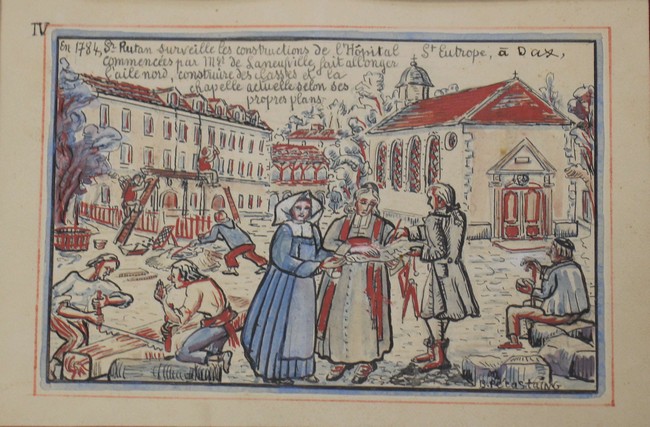 IV
En 1784, Sr Rutan surveille les constructions de l'Hôpital St Eutrope, à Dax,
commencées par Mgr de Laneufville, fait allonger
l'aile nord, construire des classes et la
chapelle actuelle selon ses
propres plans.